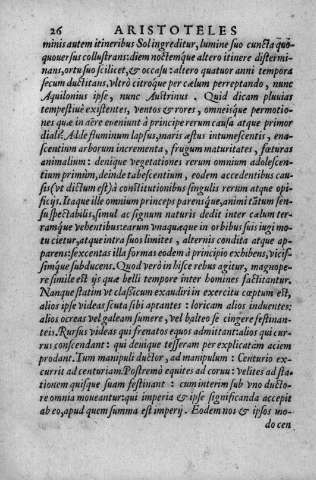 26 ARISTOTELES
minis autem itineribus Sol ingreditur, lumine suo cuncta quo-
quouersus collustrans: diem noctemque altero itinere distermi-
nans, ortu suo scilicet, & occasu: altero quatuor anni tempora
secum ductitans, vltrò citroque per cælum perreptando, nunc
Aquilonius ipse, nunc Austrinus. Quid dicam pluuias
tempestiuè existentes, ventos & rores, omneisque permotio-
nes quæ in aëre eueniunt à principe rerum causa atque primor
diali? Adde fluminum lapsus, maris æstus intumescentis, ena-
scentium arborum incrementa, frugum maturitates, fœturas
animalium: denique vegetationes rerum omnium adolescen-
tium primùm, deinde tabescentium, eodem accedentibus cau-
sis (vt dictum est) à constitutionibus singulis rerum atque opi-
ficijs. Itaque ille omnium princeps parensque, animi tátum sen-
su spectabilis, simul ac signum naturis dedit inter cælum ter-
ramque vehentibus: earum vnaquæque in orbibus suis iugi mo-
tu cietur, atque intra suos limites, alternis condita atque ap-
parens: sexcentas illa formas eodem à principio exhibens, vicis-
simque subducens. Quod verò in hisce rebus agitur, magnope-
re simile est ijs quæ belli tempore inter homines factitantur.
Nanque statim vt classicum exaudiri in exercitu cœptum est,
alios ipse videas scuta sibi aptantes: loricam alios induentes:
alios ocreas vel galeam sumere, vel balteo se cingere festinan-
teis. Rursus videas qui frenatos equos admittant: alios qui cur-
rus conscendant: qui denique tesseram per explicatam aciem
prodant. Tum manipuli ductor, ad manipulum: Centurio ex-
currit ad centuriam. Postremò equites ad cornu: velites ad sta-
tionem quisque suam festinant: cum interim sub vno ducto-
re omnia moueantur: qui imperia & ipse significanda accepit
ab eo, apud quem summa est imperij. Eodem nos & ipsos mo-
do cen